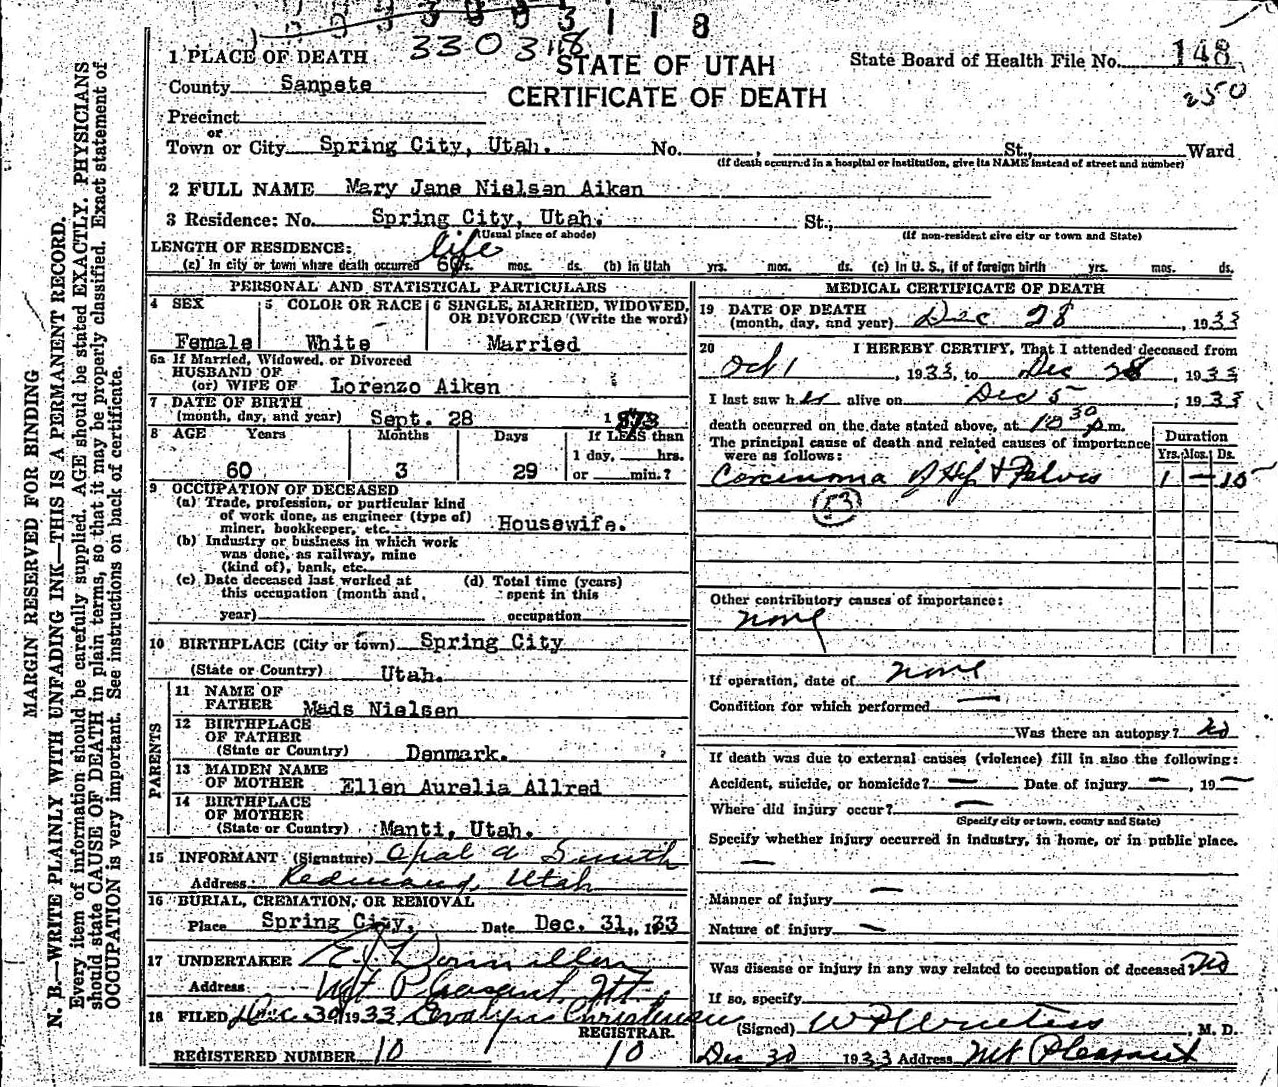 3303118
148
250
1 PLACE OF DEATH
STATE OF UTAH
CERTIFICATE OF DEATH
State Board of Health File No.
County Sanpete
Precinct
or
Town or City Spring City, Utah. No. , St., Ward
(If death occurred in a hospital or institution, give its NAME instead of street and number)
2 FULL NAME Mary Jane Nielsen Aiken
3 Residence: No. Spring City, Utah. St.,
(Usual place of abode) (If non-resident give city or town and State)
LENGTH OF RESIDENCE: life
(a) In city or town where death occurred 60 yrs. mos. ds. (b) In Utah yrs. mos. ds. (c) In U. S., if of foreign birth yrs. mos. ds.
PERSONAL AND STATISTICAL PARTICULARS
4 SEX Female
5 COLOR OR RACE White
6 SINGLE, MARRIED, WIDOWED, OR DIVORCED (Write the word) Married
6a If Married, Widowed, or Divorced
HUSBAND OF
(or) WIFE OF Lorenzo Aiken
7 DATE OF BIRTH
(month, day, and year) Sept. 28 1873
8 AGE Years Months Days If LESS than
1 day, hrs.
60 3 29 or min.?
9 OCCUPATION OF DECEASED
(a) Trade, profession, or particular kind
of work done, as engineer (type of)
miner, bookkeeper, etc. Housewife.
(b) Industry or business in which work
was done, as railway, mine
(kind of), bank, etc.
(c) Date deceased last worked at
this occupation (month and
year)
(d) Total time (years)
spent in this
occupation
10 BIRTHPLACE (City or town) Spring City
(State or Country) Utah.
PARENTS
11 NAME OF
FATHER Mads Nielsen
12 BIRTHPLACE
OF FATHER
(State or Country) Denmark.
13 MAIDEN NAME
OF MOTHER Ellen Aurelia Allred
14 BIRTHPLACE
OF MOTHER
(State or Country) Manti, Utah.
15 INFORMANT (Signature) Opal A Smith
Address Redmond, Utah
16 BURIAL, CREMATION, OR REMOVAL
Place Spring City, Date Dec. 31, 1933
17 UNDERTAKER
Address Mt Pleasant Ut.
18 FILED Dec 30 1933 Evalynn Christensen
REGISTRAR.
REGISTERED NUMBER 10 10
MEDICAL CERTIFICATE OF DEATH
19 DATE OF DEATH
(month, day, and year) Dec 28, 1933
20 I HEREBY CERTIFY, That I attended deceased from
Oct 1, 1933, to Dec 28, 1933
I last saw her alive on Dec 5, 1933
death occurred on the date stated above, at 10 30 p.m.
The principal cause of death and related causes of importance
were as follows:
Duration
Yrs. Mos. Ds.
Carcinoma of Hip & Pelvis 1 — 15
53
Other contributory causes of importance:
none
If operation, date of none
Condition for which performed —
Was there an autopsy? no
If death was due to external causes (violence) fill in also the following:
Accident, suicide, or homicide? — Date of injury —, 19—
Where did injury occur? —
(Specify city or town, county and State)
Specify whether injury occurred in industry, in home, or in public place.
—
Manner of injury —
Nature of injury —
Was disease or injury in any way related to occupation of deceased no
If so, specify
(Signed) , M. D.
Dec 30 1933 Address Mt Pleasant
MARGIN RESERVED FOR BINDING
N. B.—WRITE PLAINLY WITH UNFADING INK—THIS IS A PERMANENT RECORD.
Every item of information should be carefully supplied. AGE should be stated EXACTLY. PHYSICIANS
should state CAUSE OF DEATH in plain terms, so that it may be properly classified. Exact statement of
OCCUPATION is very important. See instructions on back of certificate.